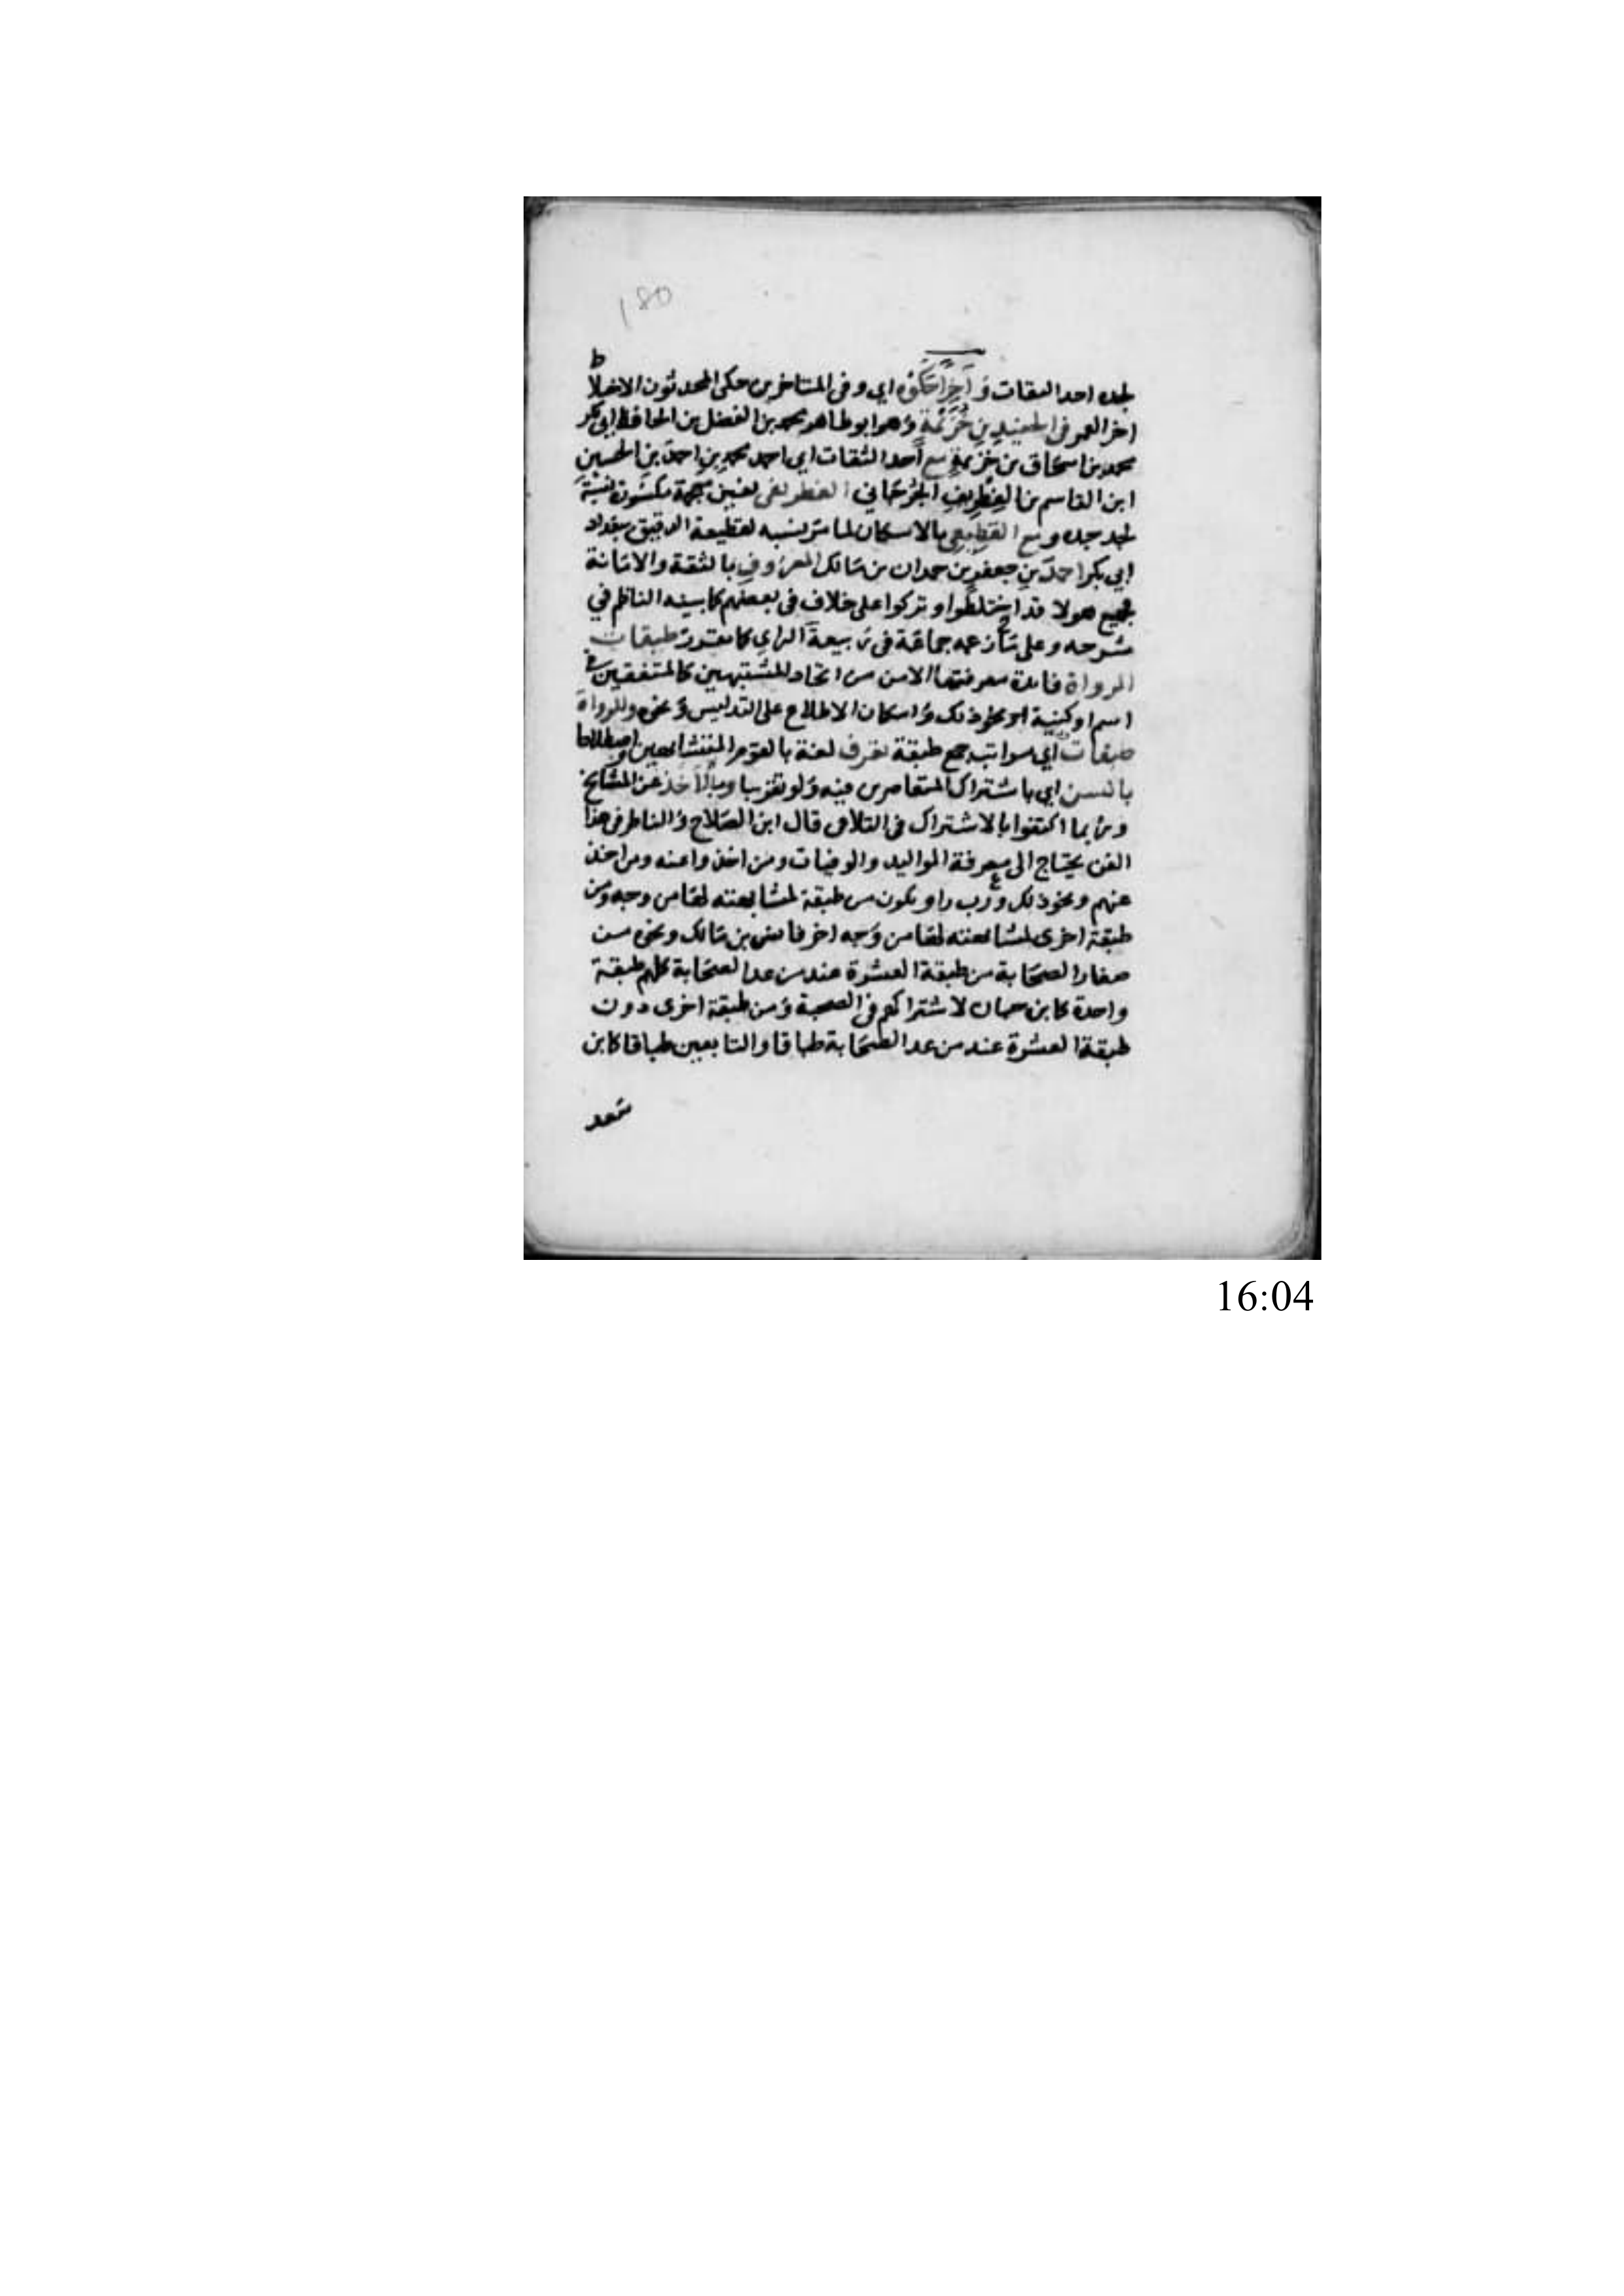 180
لجده احد الثقات وَآخِرًا حَكَوْهُ اي وفي المتاخرين حكى المحدثون الاختلاط
اخر العمر في الحفيدِ بنِ خُزَيمَة وهو ابو طاهر محمد بن الفضل بن الحافظ ابي بكر
محمد بن اسحاق بن خزيمة مع أحد الثقات ابي احمد محمدِ بنِ احمدَ بن الحسينِ
ابن القاسم بن الغِطْرِيفِ الجُرْجَاني الغطريفي بغين معجمة مكسورة نسبة
لجد جده ومع القَطِيعِي بالاسكان لما مر نسبه لقطيعة الدقيق ببغداد
ابي بكر احمدَ بنِ جعفرِ بن حمدان بن مَالك المعرُوفِ بالثقة والامَانة
فجميع هولا قد اختلطوا وتركوا على خلاف في بعضهم كما بينه الناظم في
شرحه وعلى مَا زعمه جماعَة في رَبيعةَ الراي كما تقدمَ طبقات
الرواة فائدة معرفتها الامن من اتحاد المشتبهين كالمتفقين في
اسم او كنية او نحو ذلك وَامكان الاطلاع على التدليس وَنحوه وللرواةِ
طبقات اي مراتب جمع طبقة تعرف لغة بالقوم المتشابهين واصطلاحا
بالسن اي باشتراك المتعاصرين فيه وَلو تقريبا وبالأَخذ عن المشايخ
ورُبما اكتفوا بالاشتراك في التلاقي قال ابن الصَلاح وَالناظر في هذا
الفن يحتاج الى معرفة المواليد والوفيات ومن اخذوا عنه ومن اخذ
عنهم ونحو ذلك ورب راو يكون من طبقة لمشابهته لها من وجه ومن
طبقة اخرى لمشابهته لها من وَجه اخر فانس بن مَالك ونحوه من
صغار الصحَابة من طبقة العشرة عند من عد الصحَابة كلهم طبقة
واحدة كابن حبان لاشتراكهم في الصحبة وَمن طبقة اخرى دون
طبقة العشرة عند من عد الصحَابة طباقا والتابعين طباقا كابن
سَعد
16:04